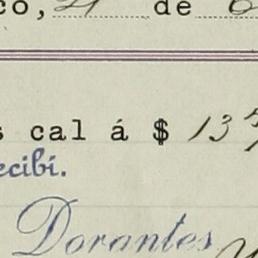 co, 21 de
s cal á $ 13
ecibí.
Dorantes